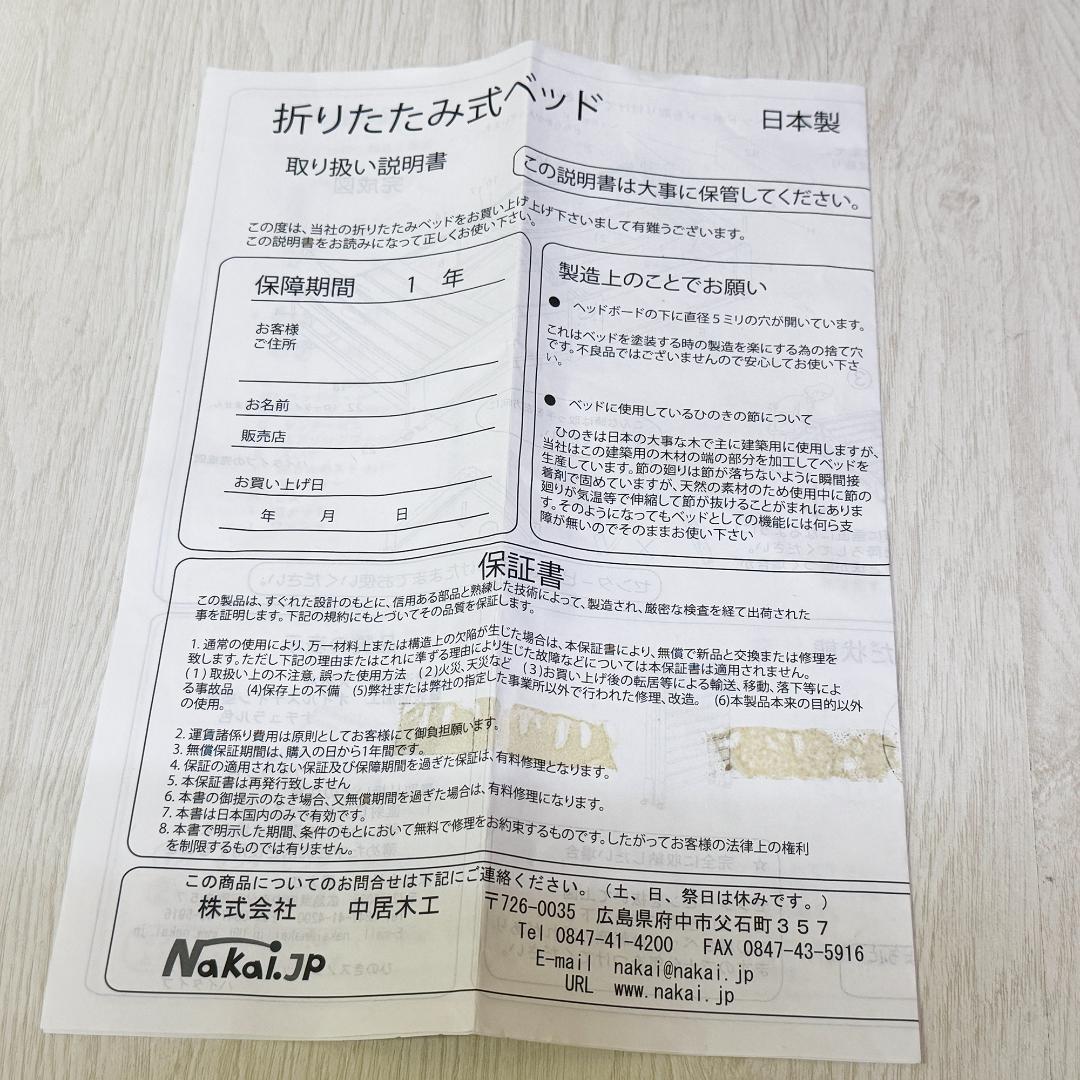 折りたたみ式ベッド
日本製
取り扱い説明書
この説明書は大事に保管してください。
この度は、当社の折りたたみベッドをお買い上げ上げ下さいまして有難うございます。
この説明書をお読みになって正しくお使い下さい。
保障期間 1 年
お客様
ご住所
お名前
販売店
お買い上げ日
年 月 日
製造上のことでお願い
● ヘッドボードの下に直径5ミリの穴が開いています。
これはベッドを塗装する時の製造を楽にする為の捨て穴
です。不良品ではございませんので安心してお使い下さ
い。
● ベッドに使用しているひのきの節について
ひのきは日本の大事な木で主に建築用に使用しますが、
当社はこの建築用の木材の端の部分を加工してベッドを
生産しています。節の廻りは節が落ちないように瞬間接
着剤で固めていますが、天然の素材のため使用中に節の
廻りが気温等で伸縮して節が抜けることがまれにありま
す。そのようになってもベッドとしての機能には何ら支
障が無いのでそのままお使い下さい
保証書
この製品は、すぐれた設計のもとに、信用ある部品と熟練した技術によって、製造され、厳密な検査を経て出荷された
事を証明します。下記の規約にもとづいてその品質を保証します。
1. 通常の使用により、万一材料上または構造上の欠陥が生じた場合は、本保証書により、無償で新品と交換または修理を
致します。ただし下記の理由またはこれに準ずる理由により生じた故障などについては本保証書は適用されません。
(1)取扱い上の不注意,誤った使用方法 (2)火災、天災など (3)お買い上げ後の転居等による輸送、移動、落下等によ
る事故品 (4)保存上の不備 (5)弊社または弊社の指定した事業所以外で行われた修理、改造。 (6)本製品本来の目的以外
の使用。
2. 運賃諸係り費用は原則としてお客様にて御負担願います。
3. 無償保証期間は、購入の日から1年間です。
4. 保証の適用されない保証及び保障期間を過ぎた保証は、有料修理となります。
5. 本保証書は再発行致しません
6. 本書の御提示のなき場合、又無償期間を過ぎた場合は、有料修理になります。
7. 本書は日本国内のみで有効です。
8. 本書で明示した期間、条件のもとにおいて無料で修理をお約束するものです。したがってお客様の法律上の権利
を制限するものでは有りません。
この商品についてのお問合せは下記にご連絡ください。(土、日、祭日は休みです。)
株式会社 中居木工
〒726-0035 広島県府中市父石町357
Tel 0847-41-4200 FAX 0847-43-5916
E-mail nakai@nakai.jp
URL www.nakai.jp
Nakai.JP